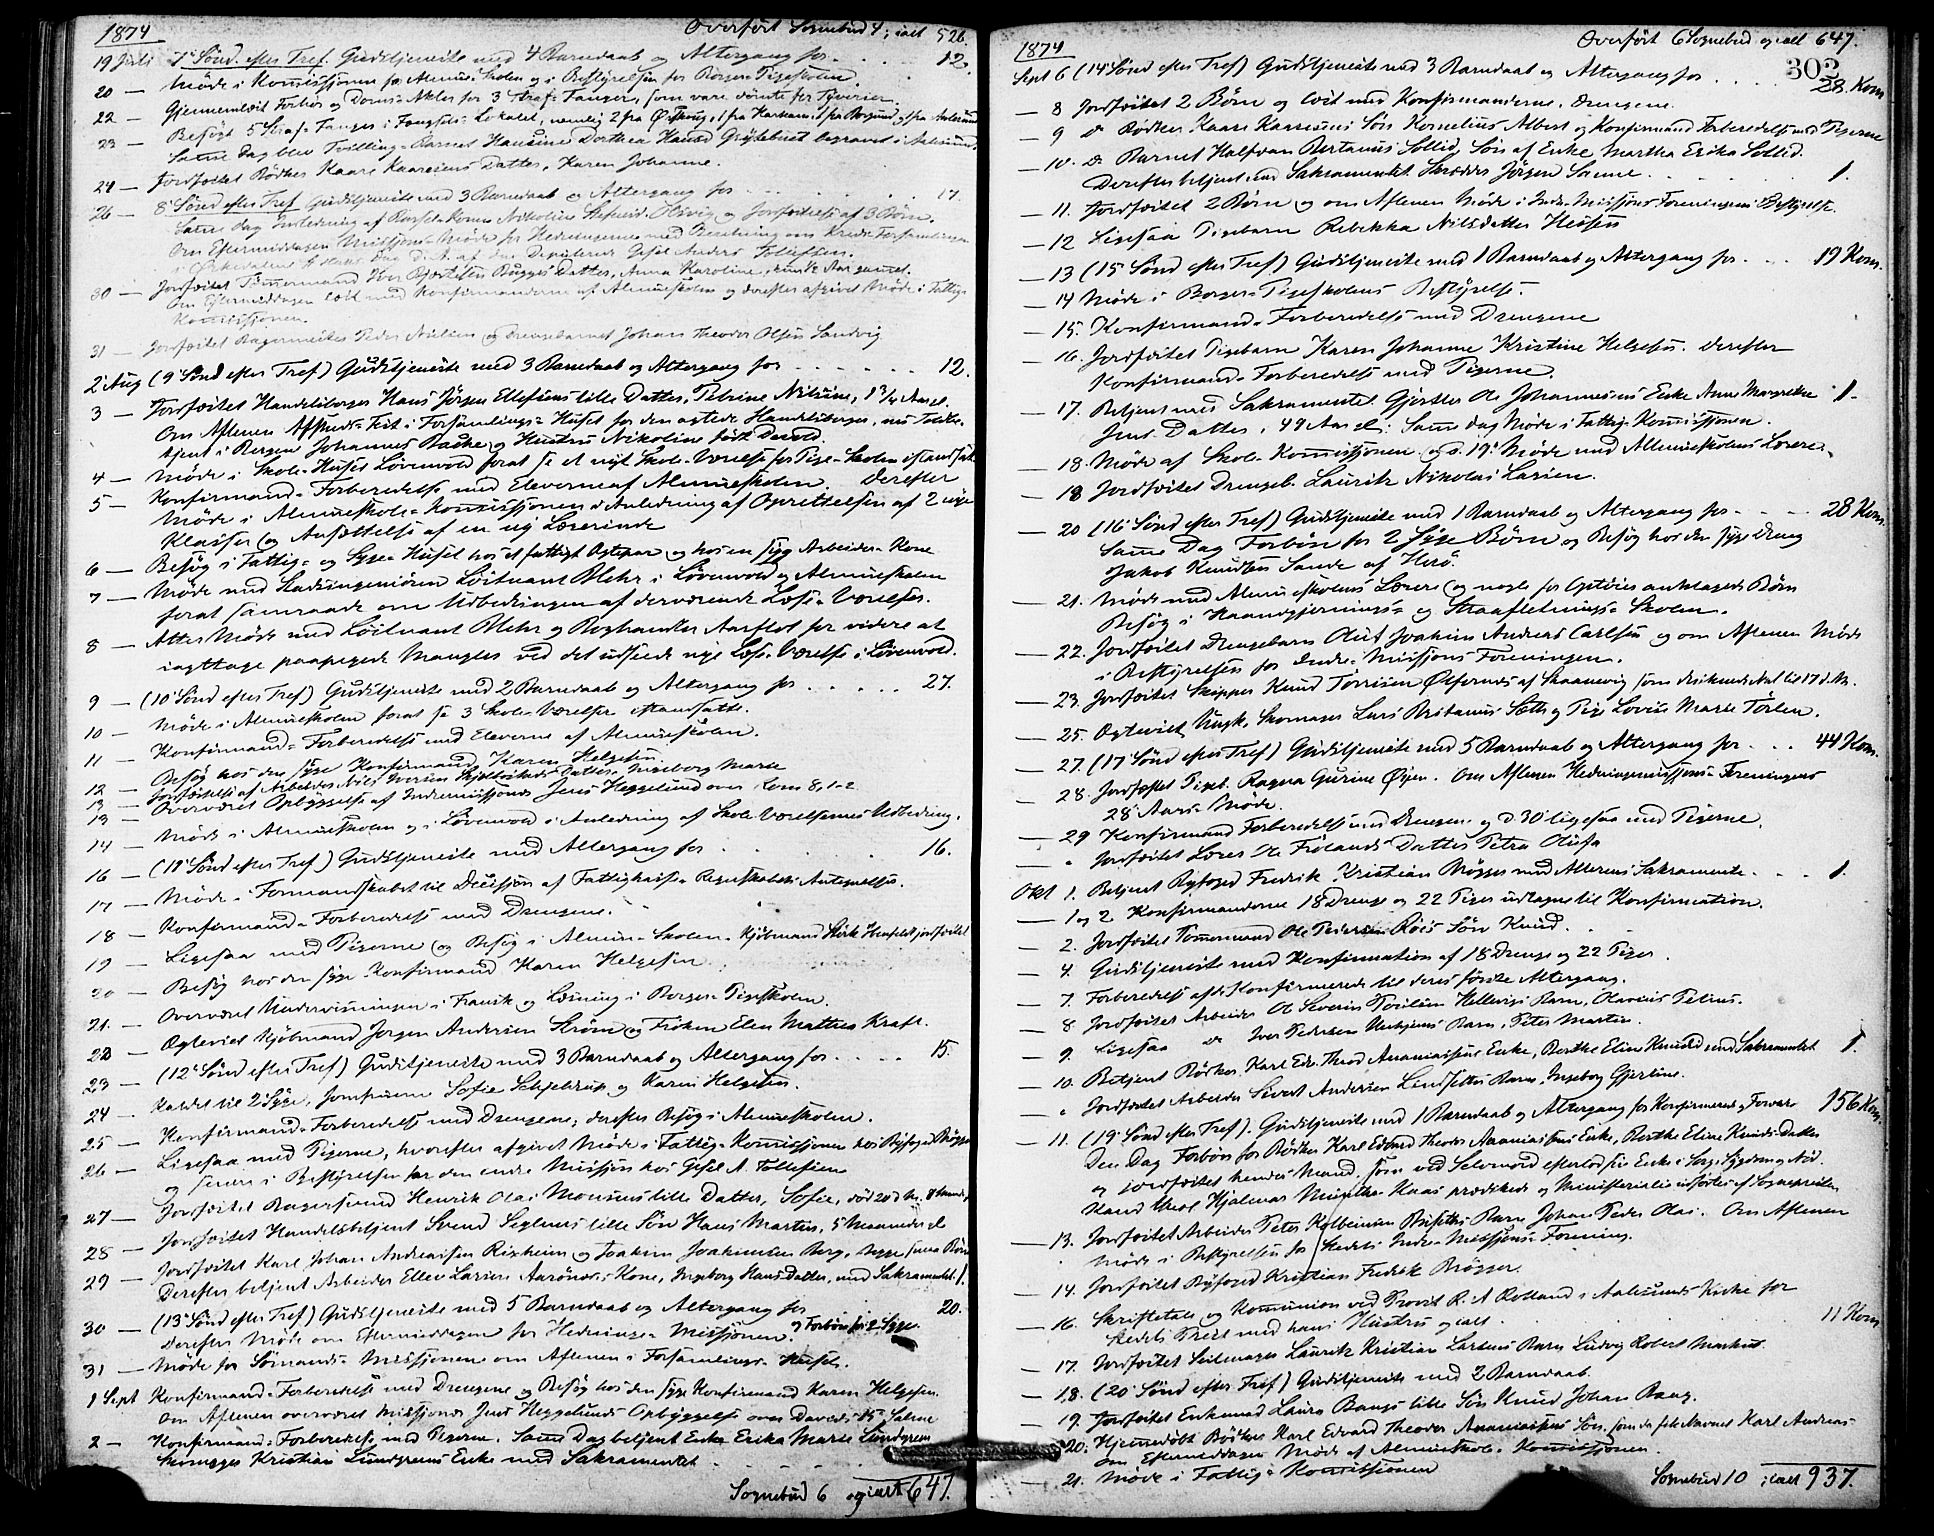 1874
Overført Sognebud 4; ialt 526.
19 Juli 7' Sønd. efter Tref. Gudstjeneste med 4 Barndaab og Altergang for 12.
20 — Møde i Kommissjonen for Almue-Skolen og i Bestyrelsen for Borger-Pigeskolen.
22 — Gjennemlæst Forhørs og Doms-Akter for 3 Straf-Fanger, som vare dømte for Tyverier.
23 — Besøgt 5 Straf-Fanger i Fængsels-Lokalet, nemlig 2 fra Ørskoug, 1 fra 1 fra Borgund, 1 fra Aalesund
Samme Dag blev Tvilling-Barnet Hansine Dorthea Hansd Grytebust begravet i Aalesund.
24 — Jordfæstet Bødker Kaare Kaaresens Datter, Karen Johanne.
26 — 8' Sønd efter Tref Gudstjeneste med 3 Barndaab og Altergang for 17.
Samme Dag Indledning af Barsel-Konen Nikoline og Jordfæstelse af 3 Børn.
Om Eftermiddagen Missjons-Møde for Hedningerne med Beretning om Kreds-Forsamlingen
i Ørkedalens af den Deputerede Gesel Anders Tollefsen.
30 — Jordfæstet Tømmermand Iver Bugges Datter, Anna Karoline, Aar gammel.
Om Eftermiddagen læst med Konfirmanderne af Almueskolen og derefter afgivet Møde i Fattig-
Kommissjonen.
31 — Jordfæstet Bagermester Peder Nielsen og Drengebarnet Johan Theodor Olsen Sandvig
2 Aug (9' Sønd efter Tref) Gudstjeneste med 3 Barndaab og Altergang for 12.
3 — Jordfæstet Handelsborger Hans Jørgen Ellefsens lille Datter, Petrine Nilsine, 1¾ Aar gl.
Om Aftenen Afskeds-Fest i Forsamlings-Huset for den agtede Handelsborger, nu Told-
tjent i Bergen Johannes Bache og Hustru Nikoline født Devold.
4 — Møde i Skole-Huset Løvenvold forat se et nyt Skole-Værelse for Pige-Skolen istandsat.
5 — Konfirmand-Forberedelse med Eleverne af Almueskolen. Derefter
Møde i Almueskole-Kommissjonen i Anledning af Oprettelsen af 2 nye
Klasser og Ansættelse af en ny Lærerinde
6 — Besøg i Fattig- og Syge-Huset hos et fattigt Ægtepar og hos en syg Arbeider-Kone
7 — Møde med Stadsingeniøren Løitnant Blehr i Løvenvold og Almueskolen
forat samraade om Udbedringen af derværende Læse-Værelser.
8 — Atter Møde med Løitnant Blehr og Boghandler Aarflot for videre at
iagttage paapegede Mangler ved det udseede nye Læse-Værelse i Løvenvold.
9 — (10' Sønd efter Tref) Gudstjeneste med 2 Barndaab og Altergang for 27.
10 — Møde i Almueskolen forat se 3 Skole-Værelser istandsatte.
11 — Konfirmand-Forberedelse med Eleverne af Almueskolen.
12 — Besøg hos den syge Konfirmand Karen Helgesen.
13 — Jordfæstelse af Arbeider Nils Iversen Datter Ingeborg Marie
13 — Overværet Opbyggelse af Indremissionær Jens Heggelund over Rom 8, 1-2
14 — Møde i Almueskolen og i Løvenvold i Anledning af Skole-Værelsernes Udbedring.
16 — (11' Sønd efter Tref) Gudstjeneste med Altergang for 16.
17 — Møde i Formandskabet til Decisjon af Fattigkasse-Regnskabets Antegnelser.
18 — Konfirmand-Forberedelse med Drengene.
19 — Ligesaa med Pigerne og Besøg i Almue-Skolen. Kjøbmand jordfæstet
20 — Besøg hos den syge Konfirmand Karen Helgesen
21 — Overværet Underviisningen i Fransk og Læsning i Borger-Pigeskolen.
22 — Ægteviet Kjøbmand Jørgen Andersen Strøm og Frøken Elen Mathea Kraft.
23 — (12' Sønd efter Tref) Gudstjeneste med 3 Barndaab og Altergang for 15.
24 — Kaldet til 2 Syge, Jomfruerne Sofie Schjelderup og Karen Helgesen.
25 — Konfirmand-Forberedelse med Drengene; derefter Besøg i Almueskolen.
26 — Ligesaa med Pigerne, hvorefter afgivet Møde i Fattig-Kommissjonen hos Byfoged Brøgger
og senere i Bestyrelsen for den indre Missjon hos Gesel A. Tollefsen
27 — Jordfæstet Bagersvend Henrik Olai Monsens lille Datter, Sofie, død 20 d. M.
28 — Jordfæstet Handelsbetjent Svend lille Søn Hans Martin, 5 Maaneder gl
29 — Jordfæstet Karl Johan Andreassen Rixheim og Joakim Joakimsen Berg, begge smaa Børn
Derefter betjent Arbeider Ellev Larsen Aarønæs's Kone, Ingeborg Hans Datter, med Sakramentet 1.
30 — (13' Sønd efter Tref) Gudstjeneste med 5 Barndaab og Altergang for 20.
og Forbøn for 2 Syge.
Derefter Møde om Eftermiddagen for Hednings-Missjonen.
31 — Møde for Sømands-Missjonen om Aftenen i Forsamlings-Huset.
1 Sept Konfirmand-Forberedelse med Drengene og Besøg hos den syge Konfirmand Karen Helgesen.
Om Aftenen overværet Missjonær Jens Heggelunds Opbyggelse over Davids 15 Salme
2 — Konfirmand-Forberedelse med Pigerne. Samme Dag betjent Enke Erika Marie Lundgren
Kristian Lundgrens Enke med Sakramentet
Sognebud 6 og ialt 647.
1874
Overført 6 Sognebud og ialt 647.
303
Sept 6 (14' Sønd efter Tref) Gudstjeneste med 3 Barndaab og Altergang for 28. Kom
— 8 Jordfæstet 2 Børn og læst med Konfirmanderne, Drengene.
— 9 do Bødker Kaare Kaaresens Søn Kornelius Albert og Konfirmand Forberedelse med Pigerne
— 10. do Barnet Halfvan Bertanus Sollid, Søn af Enke Martha Erika Sollid.
Derefter betjent med Sakramentet Skrædder Jørgen Sanne 1.
— 11. Jordfæstet 2 Børn og om Aftenen Møde i Indre-Missjons-Foreningens Bestyrelse.
— 12 Ligesaa Pigebarn Rebekka Nilsdatter
— 13 (15 Sønd efter Tref) Gudstjeneste med 1 Barndaab og Altergang for 19 Kom.
— 14 Møde i Borger-Pigeskolens Bestyrelse.
— 15. Konfirmand-Forberedelse med Drengene
— 16. Jordfæstet Pigebarn Karen Johanne Kristine Helgesen. Derefter
Konfirmand-Forberedelse med Pigerne.
— 17. Betjent med Sakramentet Gjørtler Ole Johannesens Enke Anne Margrethe 1.
Jens Datter, 49 Aar gl: Samme Dag Møde i Fattig-Kommissjonen.
— 18. Møde af Skole-Kommissjonen og d. 19' Møde med Almueskolens Lærere.
— 18 Jordfæstet Drengeb. Laurits Nikolai Larsen.
— 20 (16' Sønd efter Tref) Gudstjeneste med 1 Barndaab og Altergang for 28 Kom.
Samme Dag Forbøn for 2 syge Børn og Besøg hos den syge Dreng
Jakob Knudsen Sande af Herø.
— 21. Møde med Almueskolens Lærere og nogle for Optøier anklagede Børn
Besøg i Haandgjernings- og Straafletnings-Skolen.
— 22. Jordfæstet Drengebarn Oluf Joakim Andreas Carlsen og om Aftenen Møde
i Bestyrelsen for Indre-Missjons Foreningen.
— 23. Jordfæstet Skipper Knud Torrisen Ølfernes af Skaanevig som druknede Nat til 17 d. M.
— 25. Ægteviet Ungk. Skomager Lars Bertanus Sætre og Pige Lovise Marie Tørlen.
— 27. (17' Sønd efter Tref) Gudstjeneste med 5 Barndaab og Altergang for 44 Kom.
— 28. Jordfæstet Pigeb. Ragna Gurine Øyen. Om Aftenen Hedningemissjons-Foreningens
28' Aars-Møde.
— 29 Konfirmand Forberedelse med Drengene og d 30' ligesaa med Pigerne.
— " Jordfæstet Lærer Ole Frølands Datter Petra Olufa
Okt 1. Betjent Byfoged Fredrik Kristian Brøgger med Alterens Sakramente 1.
— 1 og 2 Konfirmanderne 18 Drenge og 22 Piger udtagne til Konfirmation.
— 2. Jordfæstet Tømmermand Ole Pedersen Søn Knud.
— 4. Gudstjeneste med Konfirmation af 18 Drenge og 22 Piger.
— 7. Forberedelse af de Konfirmerede til deres første Altergang.
— 8. Jordfæstet Arbeider Ole Severin Hellevigs Barn, Olavius Petinus.
— 9. Ligesaa do Iver Pedersen Barn, Peter Martin.
— 10. Betjent Bødker Karl Edv. Theod Ananiassens Enke, Berthe Eline Knudsd med Sakramentet 1.
— " Jordfæstet Arbeider Sivert Andersen Lindsæths Barn, Ingeborg Gjertine.
— 11. (19' Sønd efter Tref). Gudstjeneste med 1 Barndaab og Altergang for Konfirmerede, Forvaar 156 Kom.
Den Dag Forbøn for Bødker Karl Edvard Theodor Ananiassens Enke, Berthe Eline Knuds-Datter
og jordfæstet hendes Mand, som ved Selvmord efterlod sin Enke i Sorg, Sygdom og Nød.
Kand theol Hjalmar Munthe-Kaas prædikede og Ministerialia udførtes af Sognepresten
— 13. Jordfæstet Arbeider Peter Kolbeinsen Barn Johan Peder Olai. Om Aftenen
Møde i Bestyrelsen for Stedets Indre-Missjons-Forening.
— 14. Jordfæstet Byfoged Kristian Fredrik Brøgger.
— 16. Skriftetale og Kommunion ved Provst R. A Rolland i Aalesunds Kirke for
Stedets Prest med hans Hustru og ialt 11 Kom
— 17. Jordfæstet Seilmager Laurits Kristian Larsens Barn Ludvig Robert Markus.
— 18. (20' Sønd efter Tref) Gudstjeneste med 2 Barndaab.
— 19. Jordfæstet Enkemad Laura Bangs lille Søn Knud Johan Bang.
— 20. Hjemmedøbt Bødker Karl Edvard Theodor Ananiassens Søn, som da fik Navnet Karl Andreas.
Om Eftermiddagen Møde af Almueskole-Kommissjonen.
— 21. Møde i Fattig-Kommissjonen
Sognebud 10 ; ialt 937.